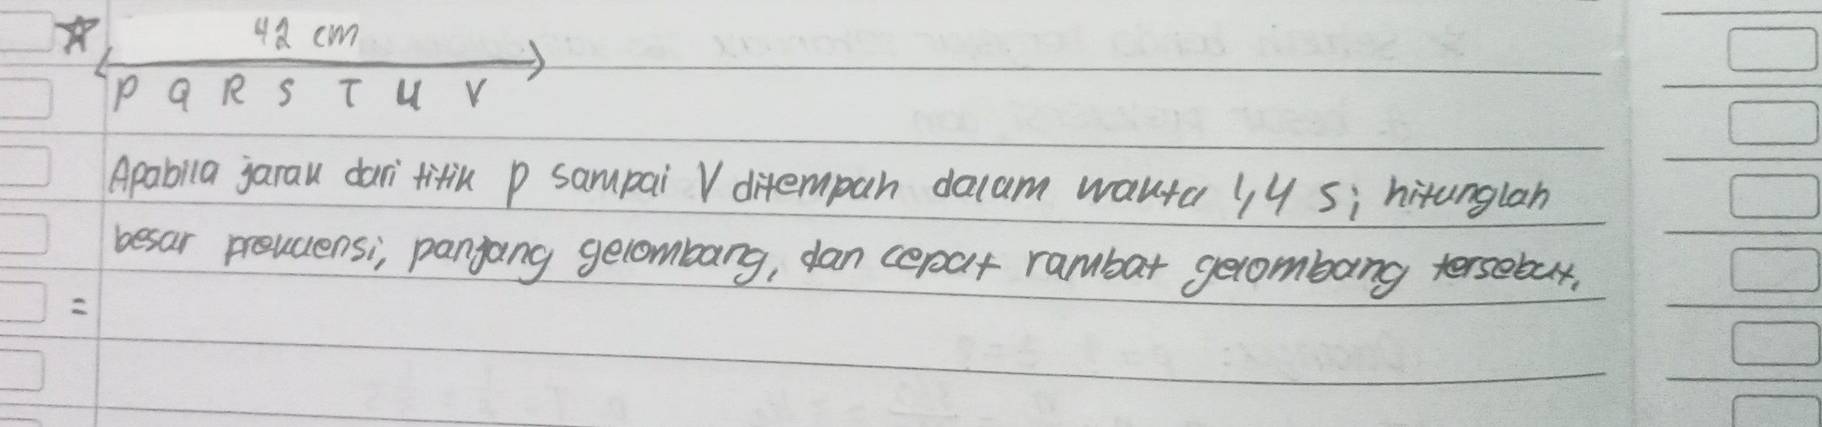 42 cm
P Q R S T U V
Apabila jarak dari titik p sampai V ditempah dalam waktu 1,4 s; hitunglah
besar prekuensi, panjang gelombang, dan cepat rambat gelombang tersebut.
=